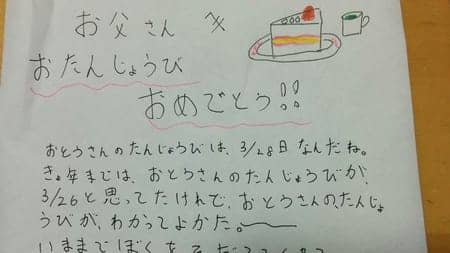 お父さんへ
おたんじょうび
おめでとう!!
おとうさんのたんじょうびは、3/28日なんだね。
きょ年までは、おとうさんのたんじょうびが、
3/26と思ってたけれど、おとうさんの、たんじょ
うびが、わかってよかた。
いままでぼくを